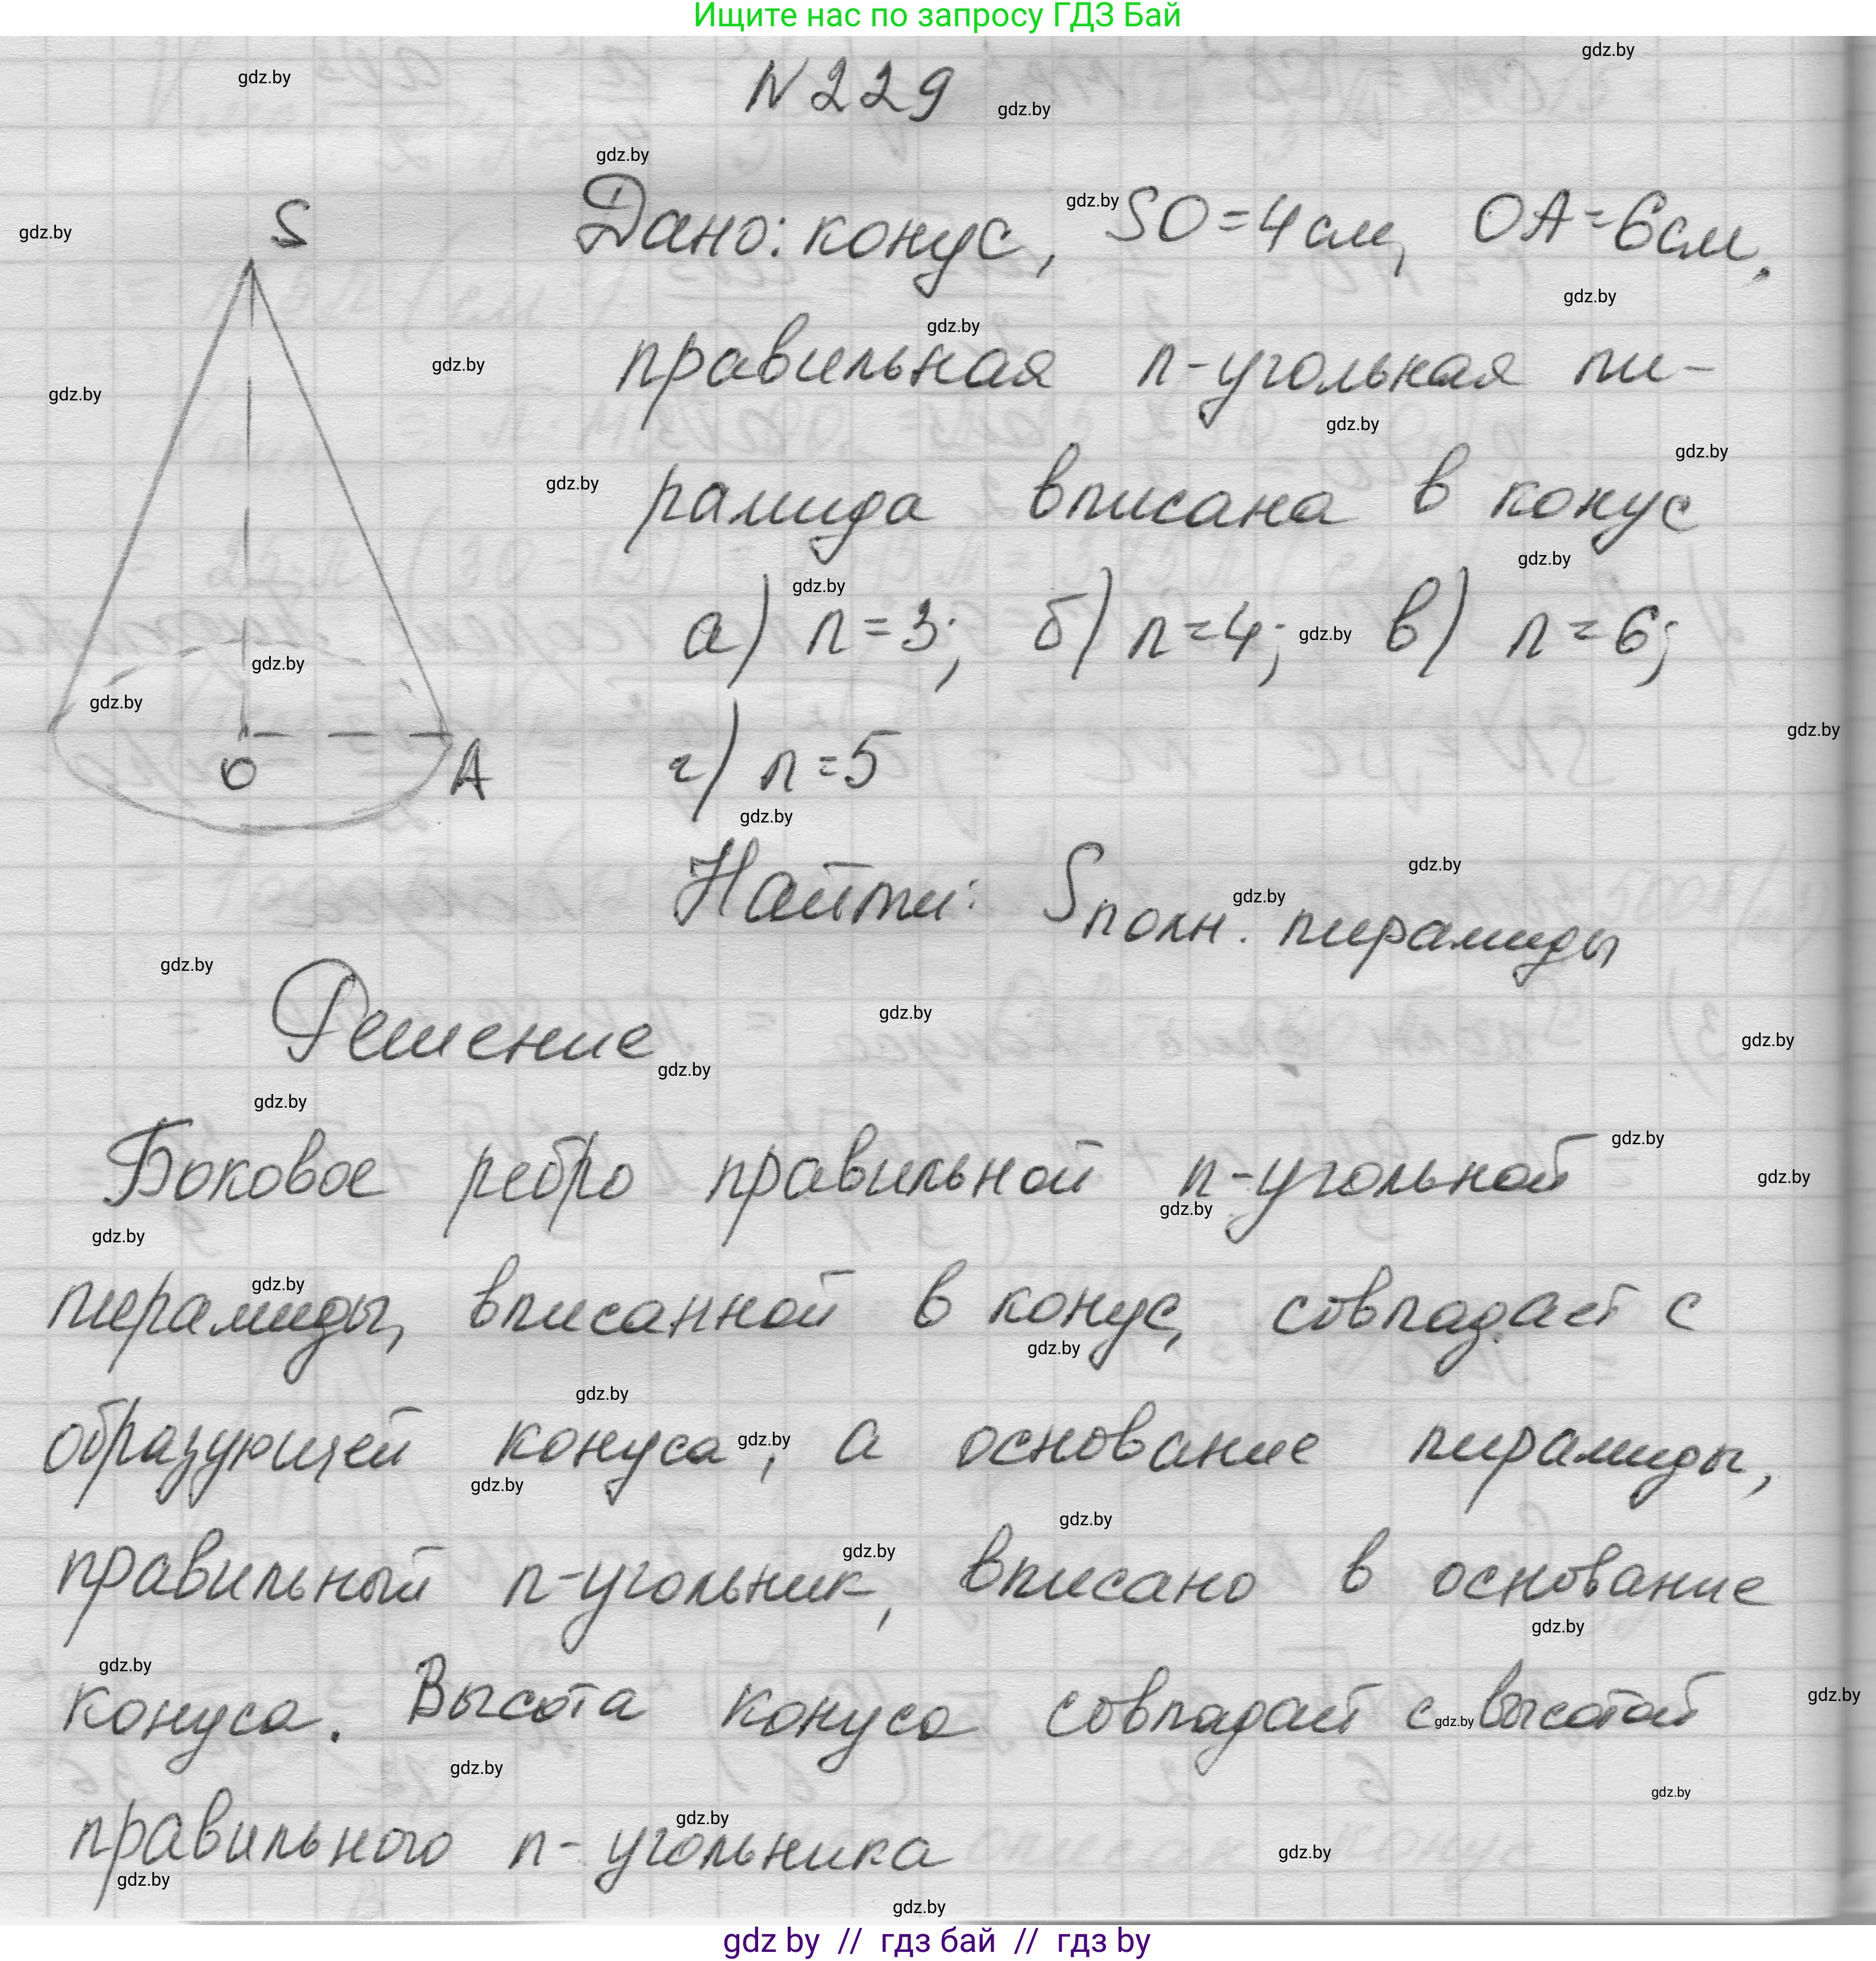 Ищите нас по запросу ГДЗ Бай
N229
Дано: конус, SO=4см, OA=6см.
правильная n-угольная пи-
рамида вписана в конус
а) n=3; б) n=4; в) n=6;
г) n=5
Найти: Sполн. пирамиды
S
O
A
Решение
Боковое ребро правильной n-угольной
пирамиды, вписанной в конус, совпадает с
образующей конуса, а основание пирамиды,
правильный n-угольник, вписано в основание
конуса. Высота конуса совпадает с высотой
правильного n-угольника
gdz by // гдз бай // гдз by